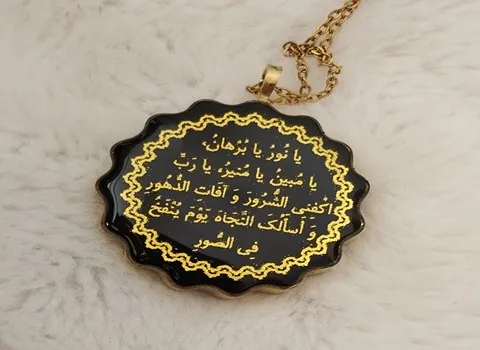 یا نُورُ یا بُرْهانُ،
یا مُبینُ یا مُنیرُ، یا رَبِّ
اکْفِنی الشُّرُورَ وَ آفاتِ الدُّهُورِ
وَ اَسْأَلُکَ النَّجَاةَ یَوْمَ یُنْفَخُ
فِی الصُّورِ